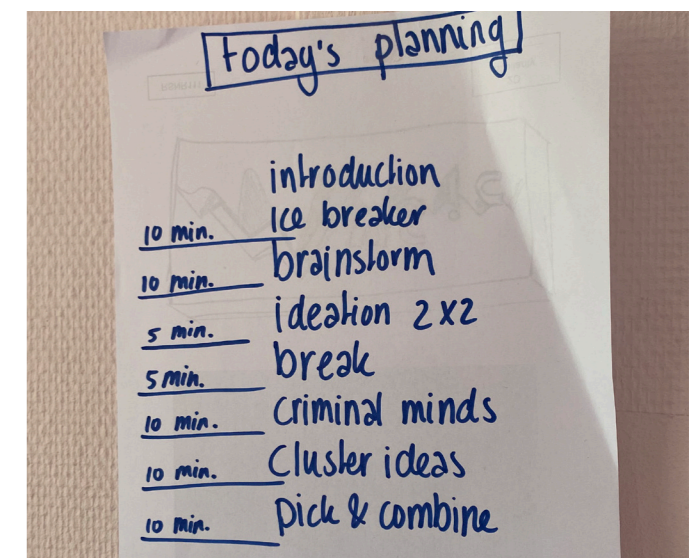 today's planning
introduction
10 min. Ice breaker
10 min. brainstorm
5 min. ideation 2x2
5 min. break
10 min. criminal minds
10 min. Cluster ideas
10 min. pick & combine